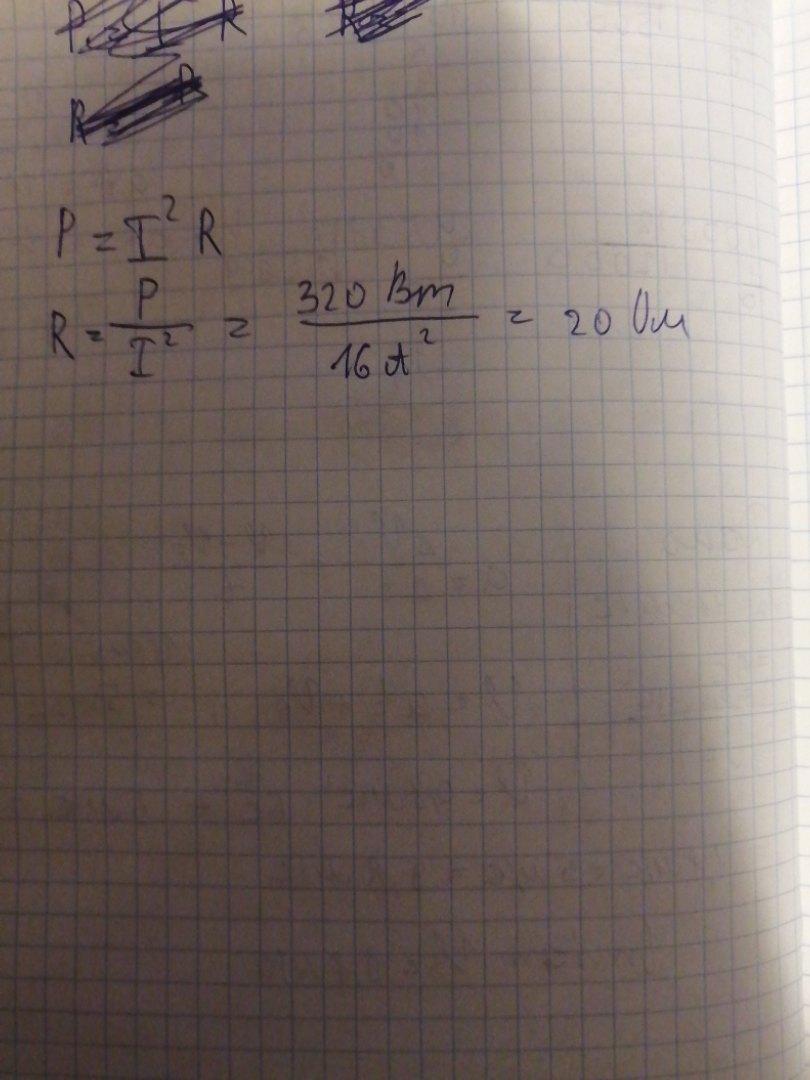 P = I² R
R = P / I² = 320 Вт / 16 А² = 20 Ом